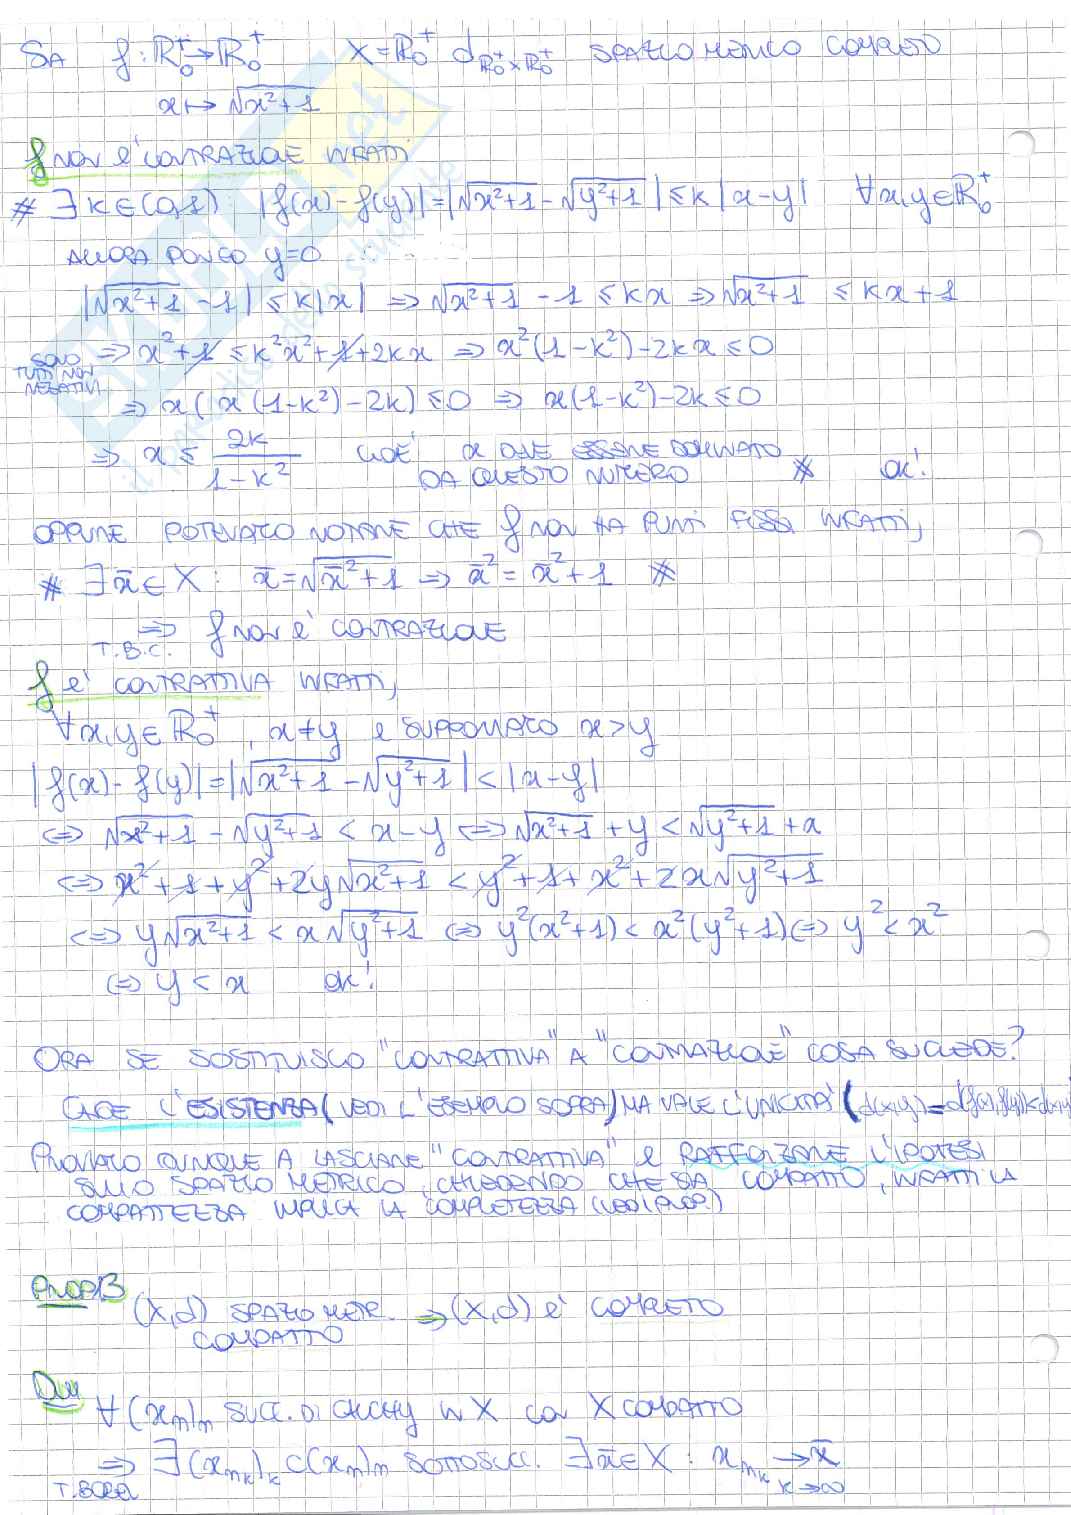 SIA f: ℝ₀⁺→ℝ₀⁺ X=ℝ₀⁺ d_{ℝ₀⁺×ℝ₀⁺} SPAZIO METRICO COMPLETO
x ↦ √(x²+1)
f NON E' CONTRAZIONE INFATTI
# ∃ K∈(0,1): |f(x)-f(y)|=|√(x²+1)-√(y²+1)|≤K|x-y| ∀x,y∈ℝ₀⁺
ALLORA PONGO y=0
|√(x²+1)-1|≤K|x| ⇒ √(x²+1)-1≤Kx ⇒ √(x²+1) ≤Kx+1
SONO TUTTI NON NEGATIVI ⇒ x²+1≤K²x²+1+2Kx ⇒ x²(1-K²)-2Kx≤0
⇒ x(x(1-K²)-2K)≤0 ⇒ x(1-K²)-2K≤0
⇒ x ≤ 2K/(1-K²) CIOE' x DEVE ESSERE DOMINATO DA QUESTO NUMERO # OK!
OPPURE POTEVAMO NOTARE CHE f NON HA PUNTI FISSI INFATTI,
# ∃x̄∈X: x̄=√(x̄²+1) ⇒ x̄²=x̄²+1 #
⇒ f NON E' CONTRAZIONE
T.B.C.
f E' CONTRATTIVA INFATTI,
∀x,y∈ℝ₀⁺, x≠y E SUPPONIAMO x>y
|f(x)-f(y)|=|√(x²+1)-√(y²+1)|<|x-y|
⇔ √(x²+1)-√(y²+1)<x-y ⇔ √(x²+1)+y<√(y²+1)+x
⇔ x²+1+y²+2y√(x²+1)<y²+1+x²+2x√(y²+1)
⇔ y√(x²+1)<x√(y²+1) ⇔ y²(x²+1)<x²(y²+1) ⇔ y²<x²
⇔ y<x OK!
ORA SE SOSTITUISCO "CONTRATTIVA" A "CONTRAZIONE" COSA SUCCEDE?
CADE L'ESISTENZA (VEDI L'ESEMPIO SOPRA) MA VALE L'UNICITA' (d(x,y)=d(f(x),f(y))<d(x,y)
PROVIAMO DUNQUE A LASCIARE "CONTRATTIVA" E RAFFORZARE L'IPOTESI
SULLO SPAZIO METRICO, CHIEDENDO CHE SIA COMPATTO, INFATTI LA
COMPATTEZZA IMPLICA LA COMPLETEZZA (VEDI PROP.)
PROP.13
(X,d) SPAZIO METR. ⇒ (X,d) E' COMPLETO
COMPATTO
DIM
∀(xₙ)ₙ SUCC. DI CAUCHY IN X CON X COMPATTO
⇒ ∃(xₙₖ)ₖ⊂(xₙ)ₙ SOTTOSUCC. ∃x̄∈X: xₙₖ → x̄
T.BOREL k→∞